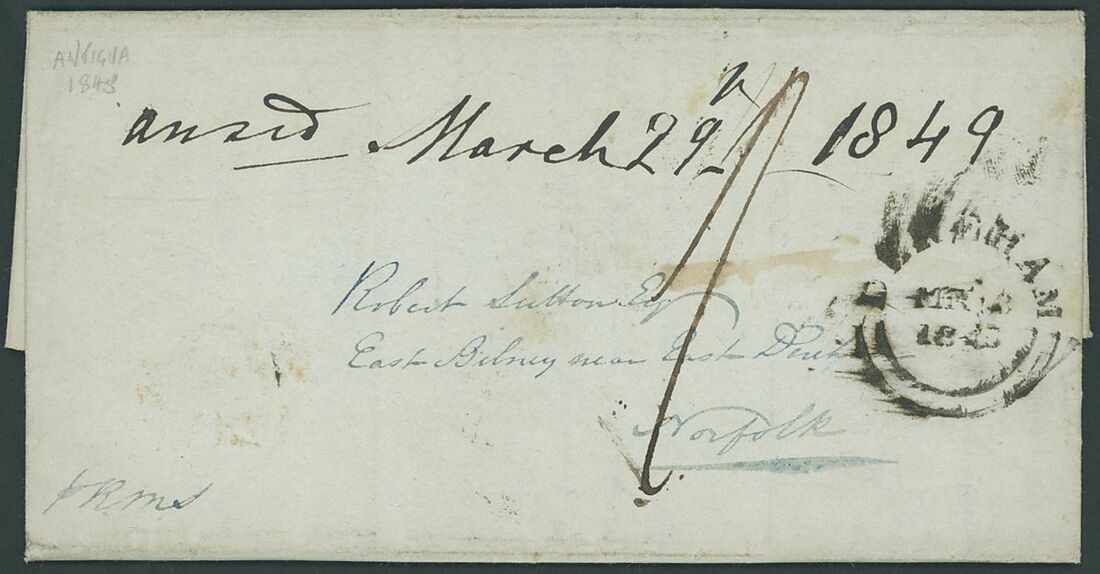 ANTIGUA
1848
ansd March 29th 1849
Robert Sutton Esq
East Bilney near East Dereham
Norfolk
p RMS
DEREHAM